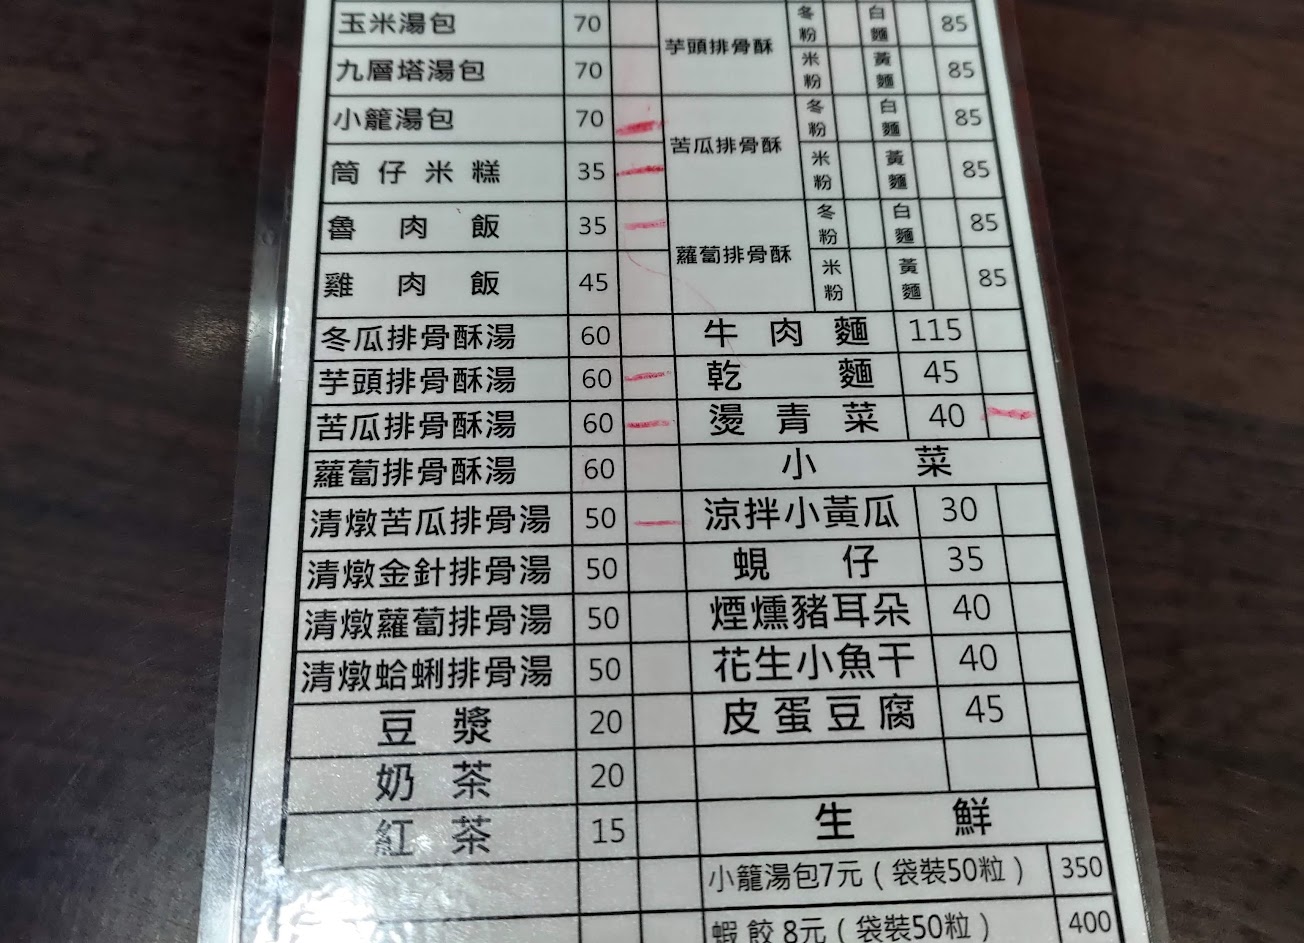 玉米湯包 70
九層塔湯包 70
小籠湯包 70
筒仔米糕 35
魯肉飯 35
雞肉飯 45
冬瓜排骨酥湯 60
芋頭排骨酥湯 60
苦瓜排骨酥湯 60
蘿蔔排骨酥湯 60
清燉苦瓜排骨湯 50
清燉金針排骨湯 50
清燉蘿蔔排骨湯 50
清燉蛤蜊排骨湯 50
豆漿 20
奶茶 20
紅茶 15
芋頭排骨酥
冬粉 白麵 85
米粉 黃麵 85
苦瓜排骨酥
冬粉 白麵 85
米粉 黃麵 85
蘿蔔排骨酥
冬粉 白麵 85
米粉 黃麵 85
牛肉麵 115
乾麵 45
燙青菜 40
小菜
涼拌小黃瓜 30
蜆仔 35
煙燻豬耳朵 40
花生小魚干 40
皮蛋豆腐 45
生鮮
小籠湯包7元(袋裝50粒) 350
蝦餃8元(袋裝50粒) 400